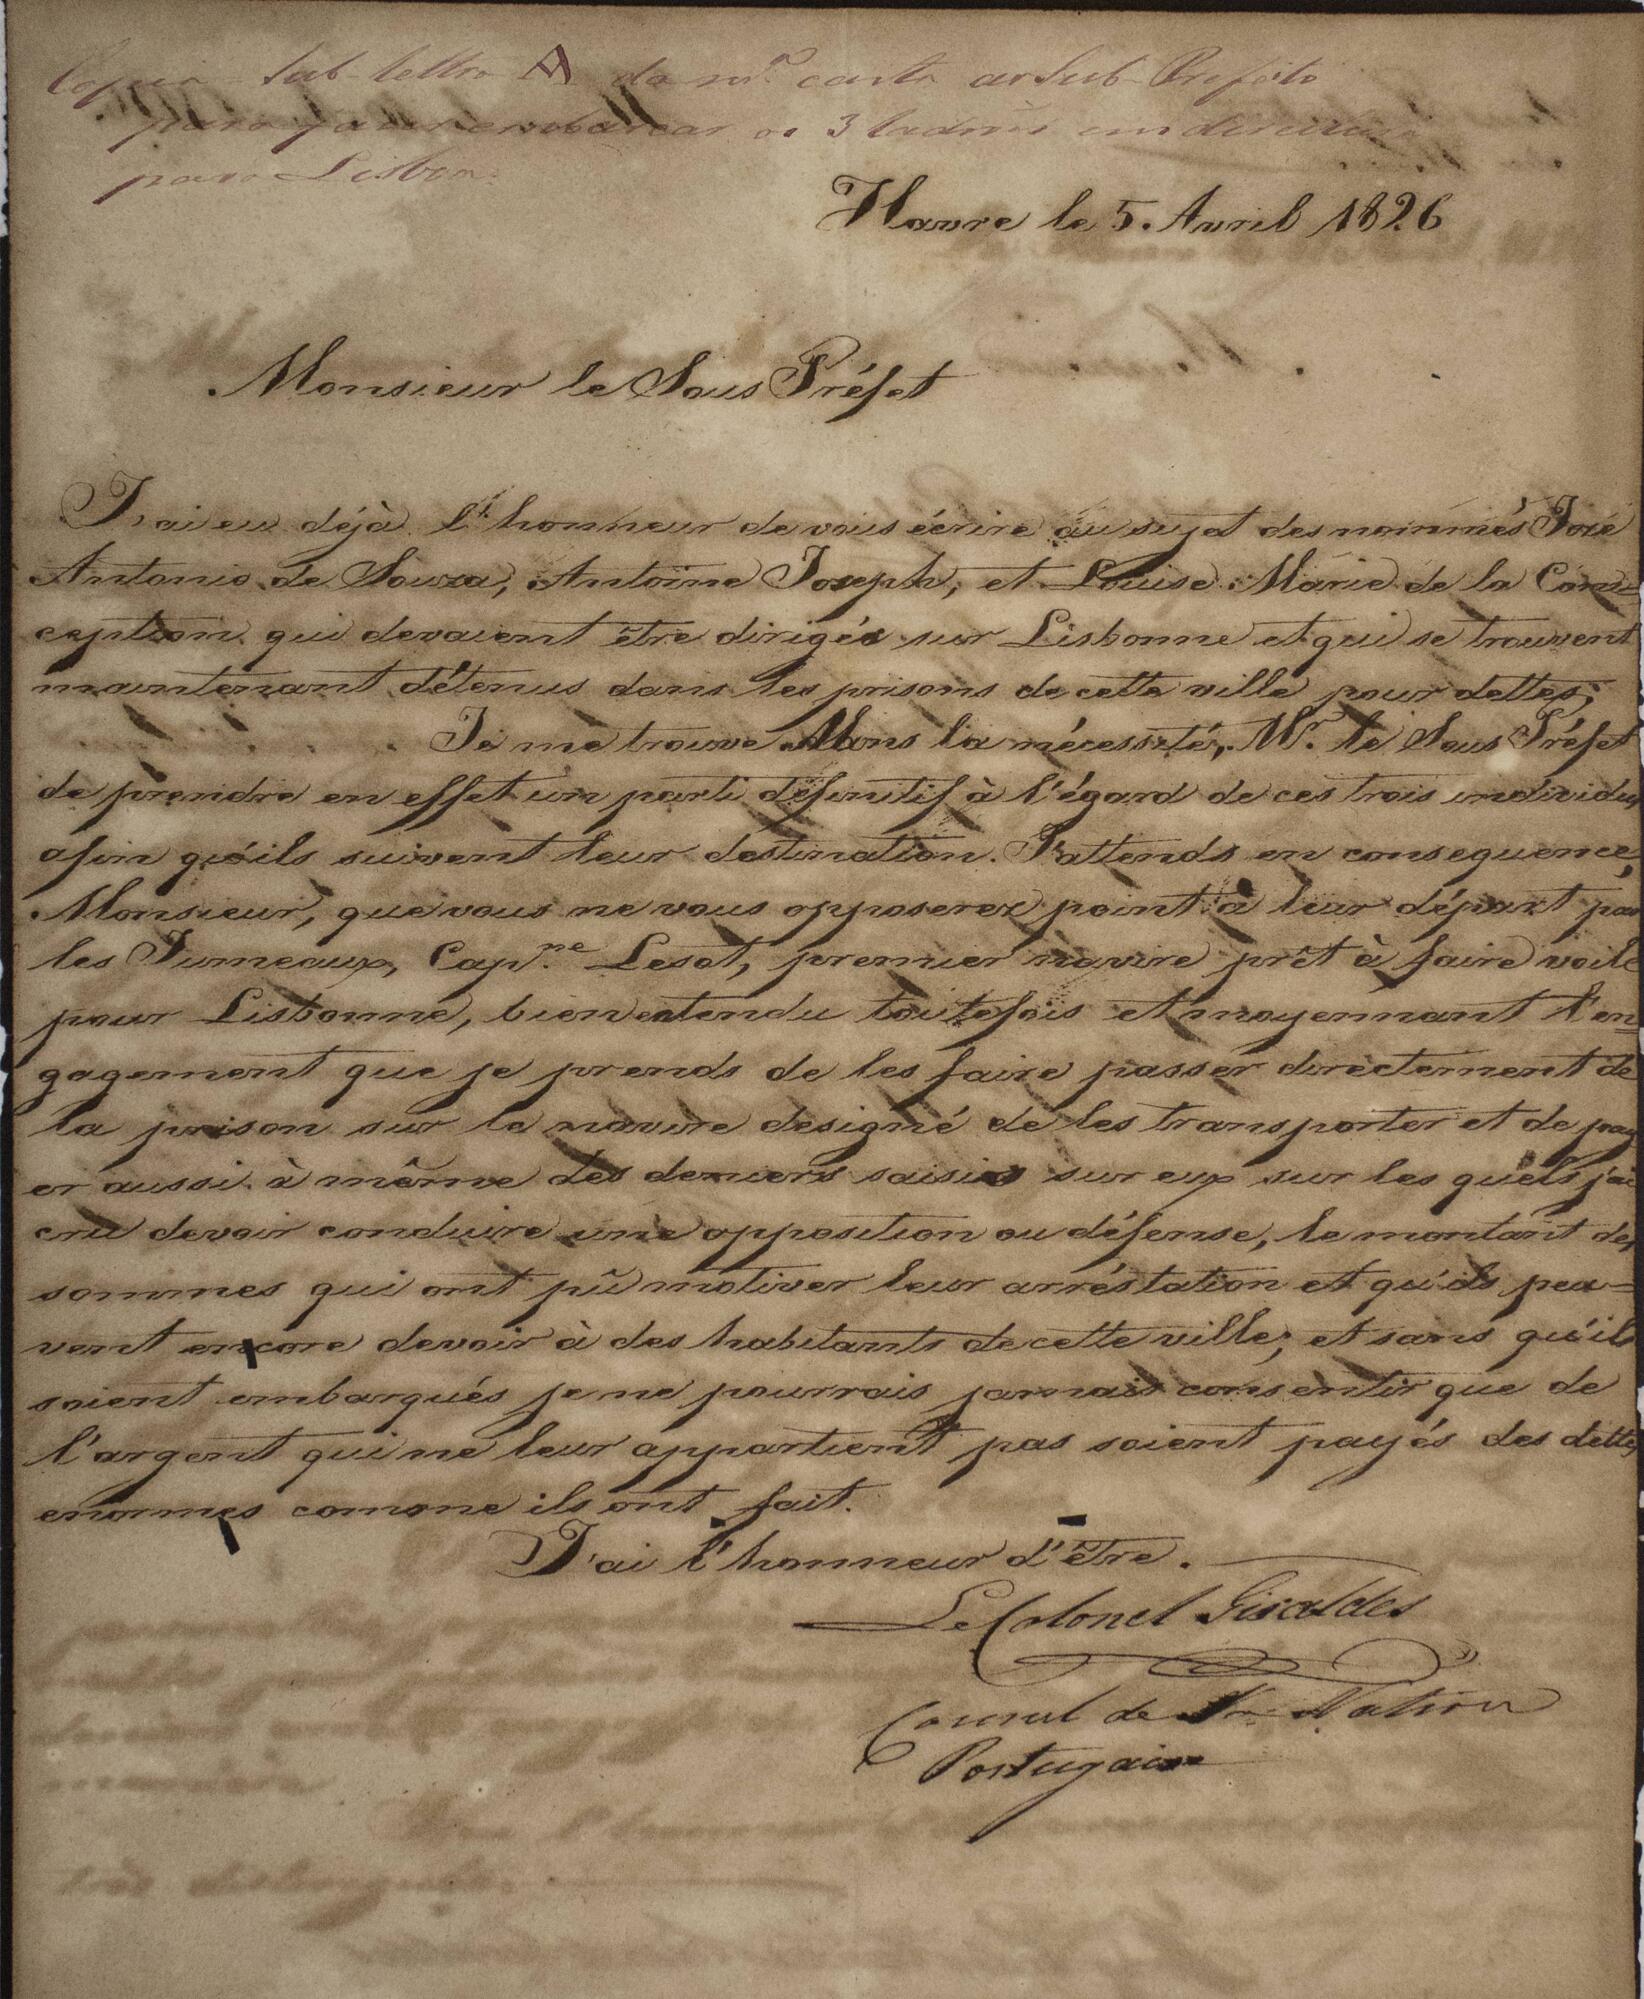 Copia Sub-lettra A da m.ª carta ao Sub-Prefeito
para fazer embarcar os 3 ladrões em direitura
para Lisboa.
Havre le 5. Avril 1826
Monsieur le Sous Préfet
J'ai eu déjà l'honneur de vous écrire au sujet des nommés José
Antonio de Souza, Antoine Joseph, et Louise Marie de la Con=
ception qui devaient être dirigés sur Lisbonne et qui se trouvent
maintenant détenus dans les prisons de cette ville pour dettes;
Je me trouve dans la nécessité, Mr. le Sous Préfet
de prendre en effet un parti définitif à l'égard de ces trois individus
afin qu'ils suivent leur destination. J'attends en consequence,
Monsieur, que vous ne vous opposerez point à leur départ par
les Jumeaux, Cap.ne Lesot, premier navire prêt à faire voile
pour Lisbonne, bien entendu toutefois et moyennant l'en=
gagement que je prends de les faire passer directement de
la prison sur le navire designé de les transporter et de pay
er aussi à même des deniers saisies sur eux sur les quels j'ai
cru devoir conduire une opposition ou défense, le montant des
sommes qui ont pû motiver leur arréstation et qu'ils peu=
vent encore devoir à des habitants de cette ville; et sans qu'ils
soient embarqués je ne pourrais jamais consentir que de
l'argent qui ne leur appartient pas soient payés des dettes
enormes comme ils ont fait.
J'ai l'honneur d'être.
Le Colonel Giraldes
Consul de Nation
Portugaise